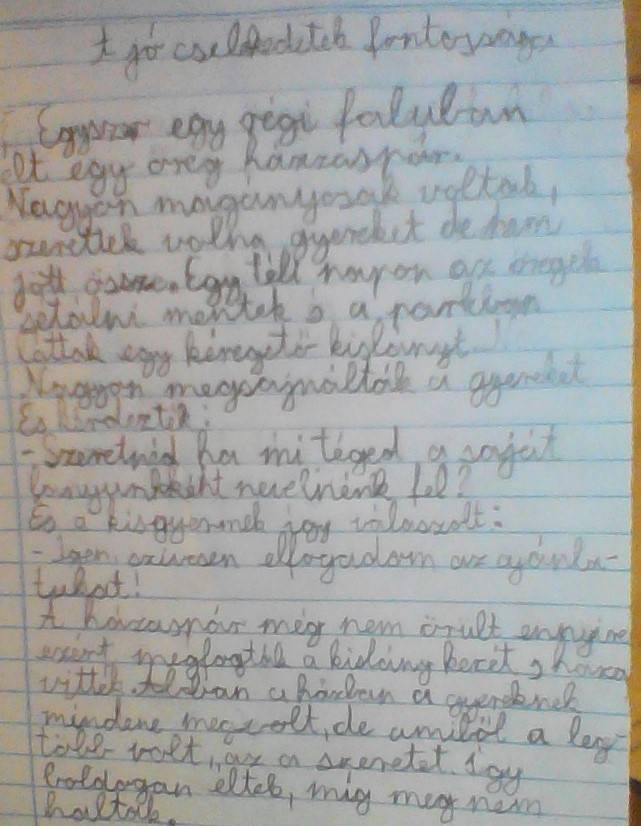 A jó cselekedetek fontossága
Egyszer egy régi faluban
élt egy öreg házaspár.
Nagyon magányosak voltak,
szerettek volna gyereket de nem
jött össze. Egy téli napon az öregek
sétálni mentek s a parkban
láttak egy kéregető kislányt.
Nagyon megsajnálták a gyereket
És kérdezték:
- Szeretnéd ha mi téged a saját
lányunkként nevelnénk fel?
És a kisgyermek így válaszolt:
- Igen, szívesen elfogadom az ajánla-
tukat!
A házaspár még nem örült ennyire
ezért megfogták a kislány kezét, s haza
vitték. Abban a házban a gyereknek
mindene megvolt, de amiből a leg-
több volt, az a szeretet. Így
boldogan éltek, míg meg nem
haltak.